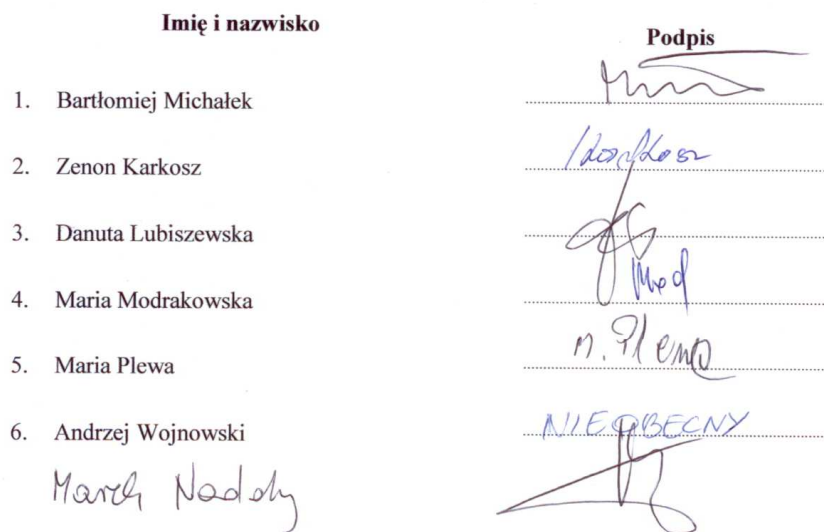 Imię i nazwisko Podpis
1. Bartłomiej Michałek
2. Zenon Karkosz Karkosz
3. Danuta Lubiszewska
4. Maria Modrakowska Mod
5. Maria Plewa M. Plewa
6. Andrzej Wojnowski NIEOBECNY
Marek